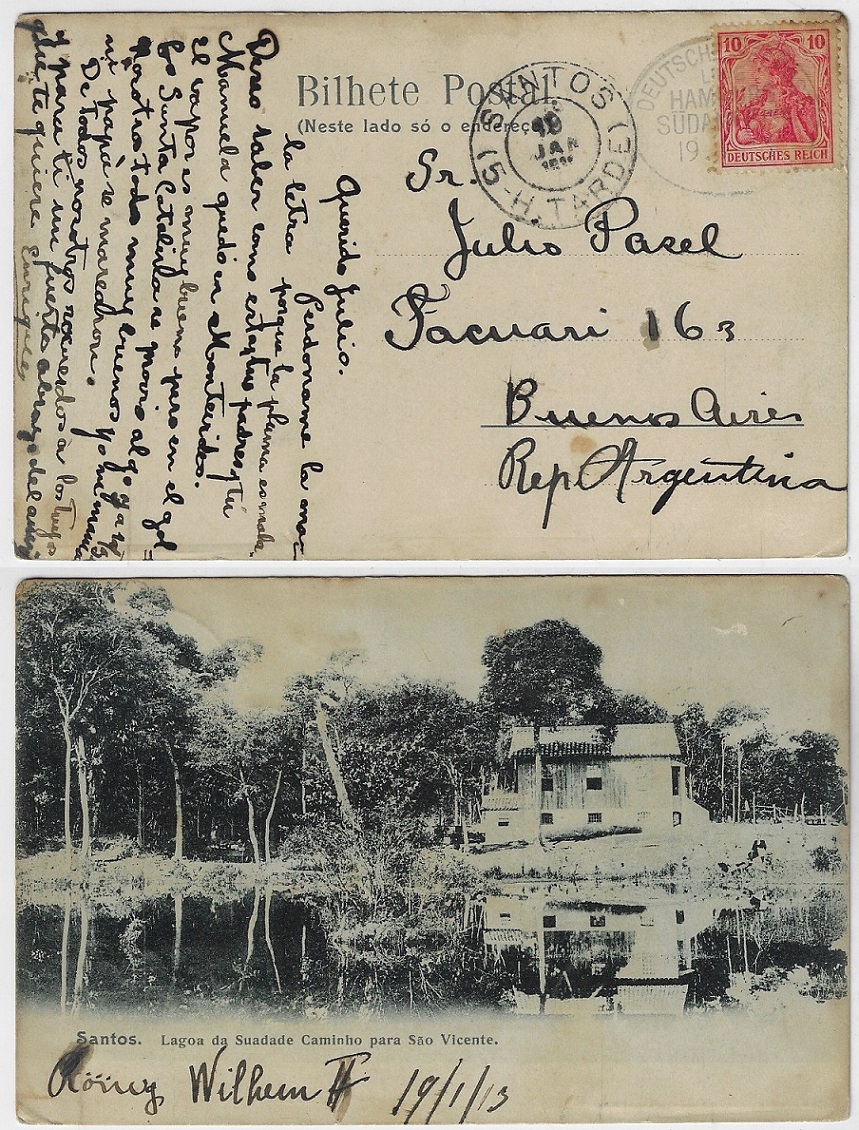 Bilhete Postal.
(Neste lado só o endereço)
SANTOS
19
JAN
(5-H. TARDE)
DEUTSCH
HAM
SÜDA
19
10 10
DEUTSCHES REICH
Sr.
Julio Pasel
Tacuari 163
Buenos Aires
Rep. Argentina
Querido Julio.
Perdoname la
la letra porque la pluma es mala.
Deseo saber como estan tus padres y tú
Manuela quedó en Montevideo.
El vapor es muy bueno pero en el gol
fo Santa Catalina se movio algo y a
nosotros todo muy buenos yo mi mama
ni papá se marearon.
De todos nosotros recuerdos à los tuyos
y para ti un fuerte abrazo del amigo
que te quiere Enrique
Santos. Lagoa da Suadade Caminho para São Vicente.
König Wilhem II 19/1/13